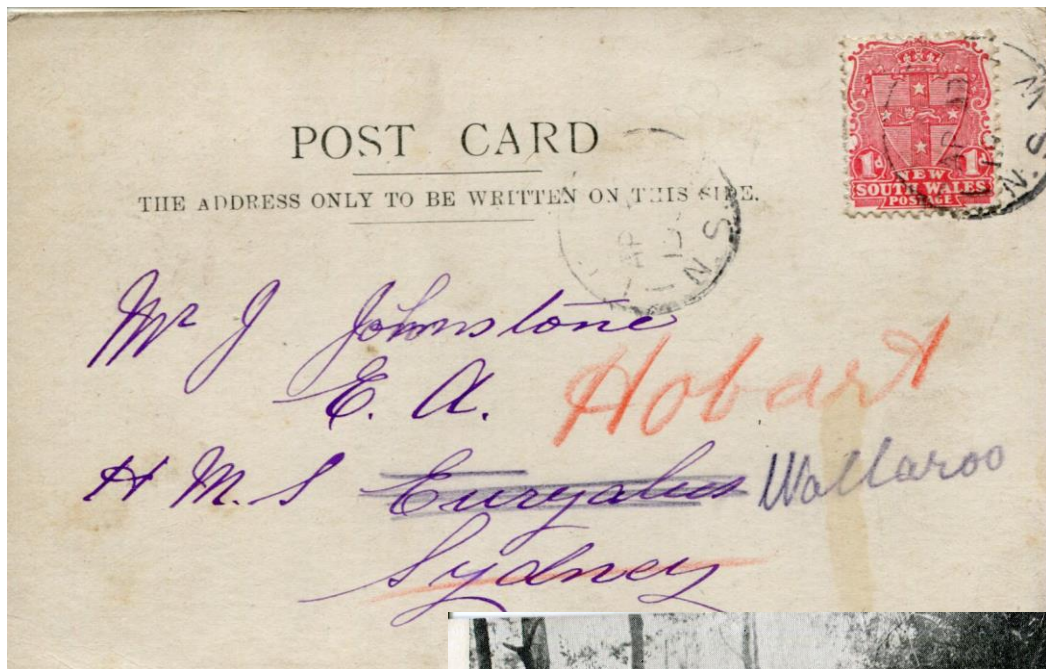 POST CARD
THE ADDRESS ONLY TO BE WRITTEN ON THIS SIDE.
1d NEW 1d
SOUTH WALES
POSTAGE
AP
N.S.W
AP
N.S
Mr J Johnstone
E. A. Hobart
H M. S Euryalus Wallaroo
Sydney